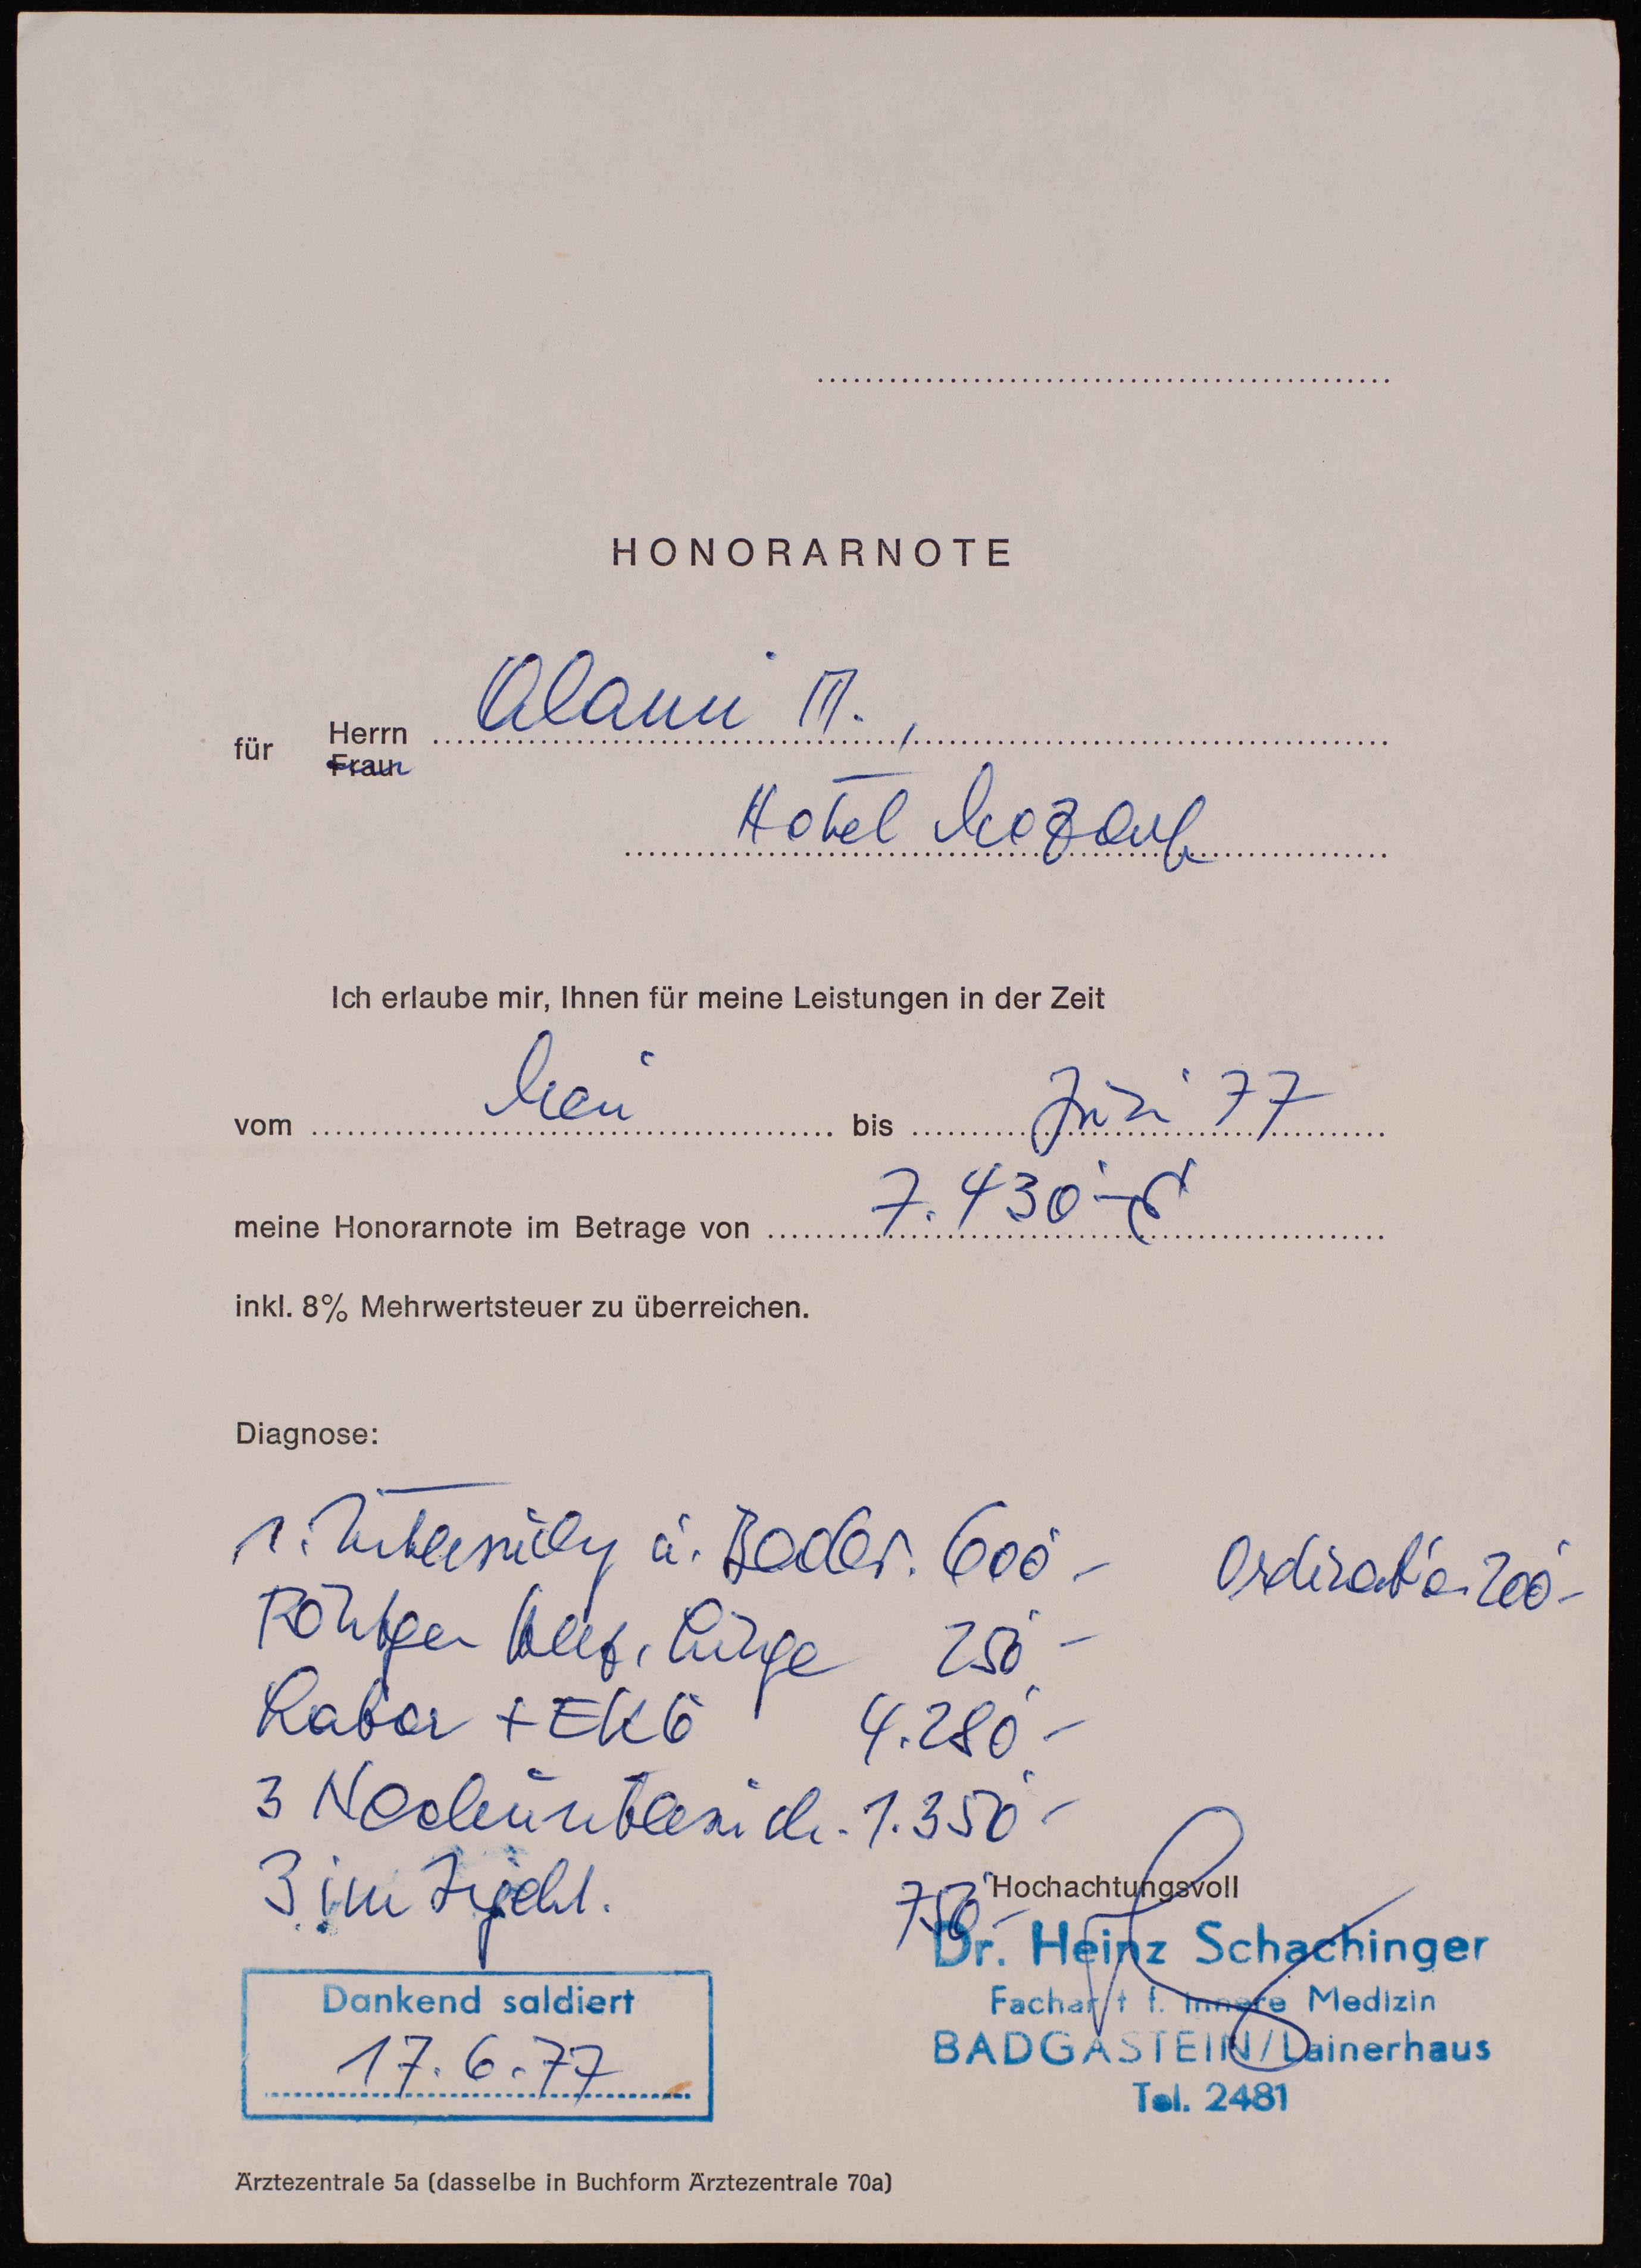 HONORARNOTE
für Herrn Alami M.,
Frau
Hotel Mozart
Ich erlaube mir, Ihnen für meine Leistungen in der Zeit
vom Mai bis Juni 77
meine Honorarnote im Betrage von 7.430.- S
inkl. 8% Mehrwertsteuer zu überreichen.
Diagnose:
1. Untersuchg u. Bäder. 600.- Ordination 200.-
Röntgen Herz, Lunge 250.-
Labor + EKG 4.280.-
3 Nachuntersuch. 1.350.-
3 im Injekt. 750.-
Hochachtungsvoll
Dr. Heinz Schachinger
Facharzt f. Innere Medizin
BADGASTEIN/Lainerhaus
Tel. 2481
Dankend saldiert
17.6.77
Ärztezentrale 5a (dasselbe in Buchform Ärztezentrale 70a)